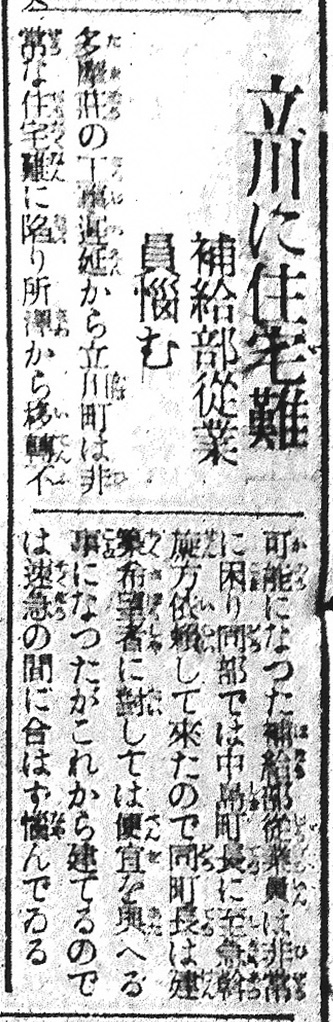 立川に住宅難
補給部従業
員悩む
多摩荘の工事遅延から立川町は非
常な住宅難に陥り所澤から移轉不
可能になつた補給部従業員は非常
に困り同部では中島町長に至急斡
旋方依頼して來たので同町長は建
築希望者に對しては便宜を與へる
事になつたがこれから建てるので
は速急の間に合はず悩んでゐる